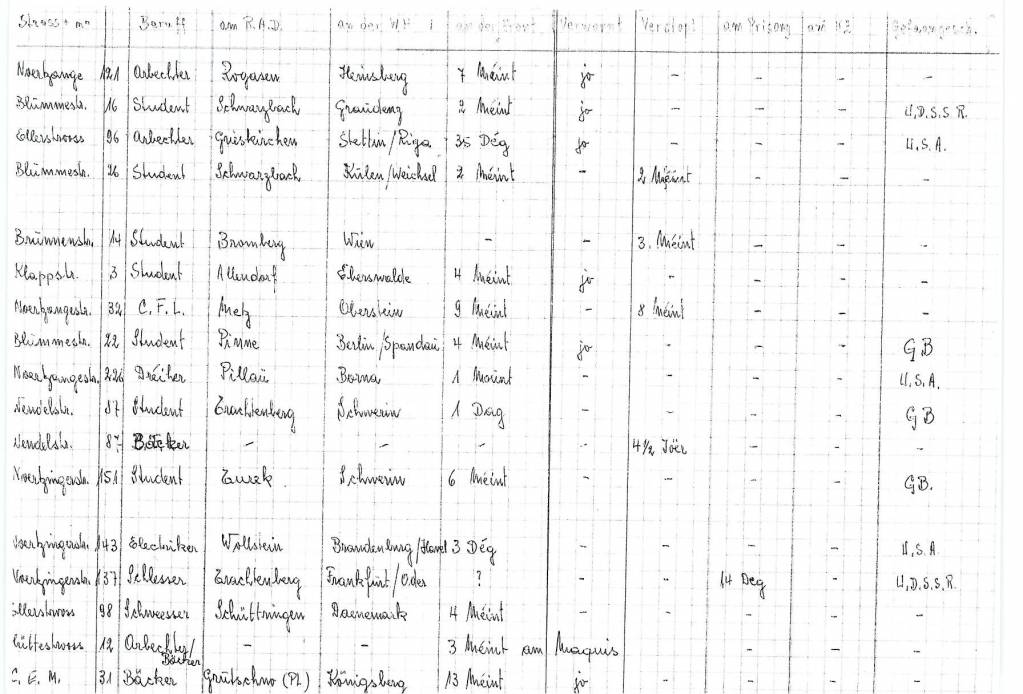 Strass + nr Beruff am R.A.D. an der WH an der Front Verwonnt Verstopt am Prisong am KZ Gefaangesch.
Noertzange 121 Arbechter Rogasen Heinsberg 7 Méint jo - - - -
Blummestr. 16 Student Schwarzbach Graudenz 2 Méint jo - - - U.D.S.S.R.
Ellerstrooss 96 Arbechter Grieskirchen Stettin/Riga 35 Dég jo - - - U.S.A.
Blummestr. 26 Student Schwarzbach Kulen/Weichsel 2 Méint - 2 Méint - - -
Brunnenstr. 14 Student Bromberg Wien - - 3. Méint - - -
Klappstr. 3 Student Allendorf Eberswalde 4 Méint jo - - - -
Noertzangestr. 32 C.F.L. Metz Oberstein 9 Méint - 8 Méint - - -
Blummestr. 22 Student Pinne Berlin/Spandau 4 Méint jo - - - GB
Noertzangestr. 226 Dréiher Pillau Borna 1 Mount - - - - U.S.A.
Wendelstr. 87 Student Trachtenberg Schwerin 1 Dag - - - - GB
Wendelstr. 87 Bäcker - - - - 4 1/2 Joer - - -
Noertzingerstr. 151 Student Turek Schwerin 6 Méint - - - - GB.
Noertzingerstr. 143 Electriker Wollstein Brandenburg/Havel 3 Dég - - - - U.S.A
Noertzingerstr. 137 Schlesser Trachtenberg Frankfurt/Oder ? - - 14 Deg - U.D.S.S.R.
Ellerstrooss 98 Schweesser Schüttringen Daenemark 4 Méint - - - - -
Hüttestrooss 12 Arbechter/Bäcker - - 3 Méint am Maquis - - - -
C.E.M. 31 Bäcker Grutschno (Pl.) Königsberg 13 Méint jo - - - -